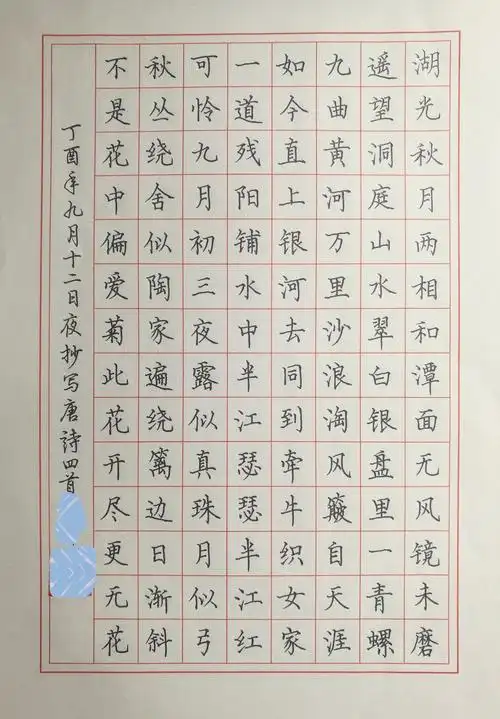 湖光秋月两相和潭面无风镜未磨
遥望洞庭山水翠白银盘里一青螺
九曲黄河万里沙浪淘风簸自天涯
如今直上银河去同到牵牛织女家
一道残阳铺水中半江瑟瑟半江红
可怜九月初三夜露似真珠月似弓
秋丛绕舍似陶家遍绕篱边日渐斜
不是花中偏爱菊此花开尽更无花
丁酉年九月十二日夜抄写唐诗四首